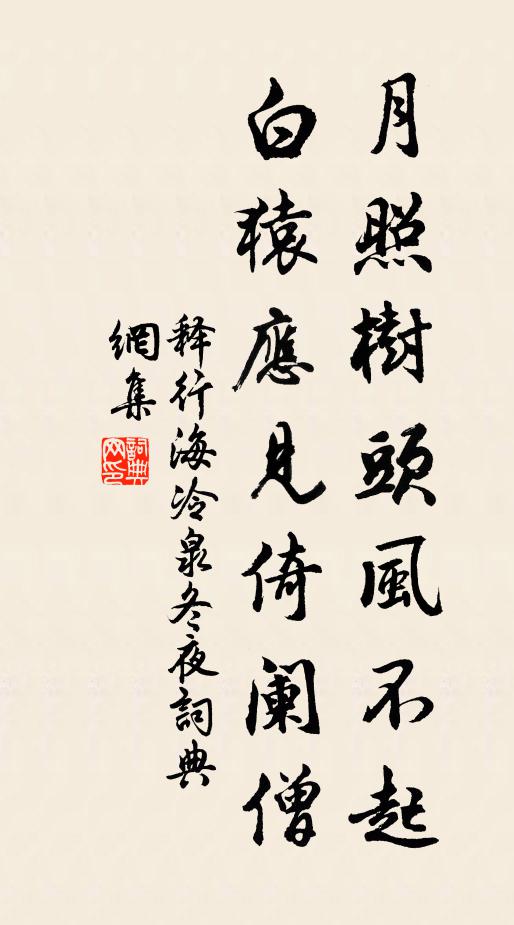 月照樹頭風不起
白猿應見倚闌僧
释行海冷泉冬夜詞典
網集
詞典網印